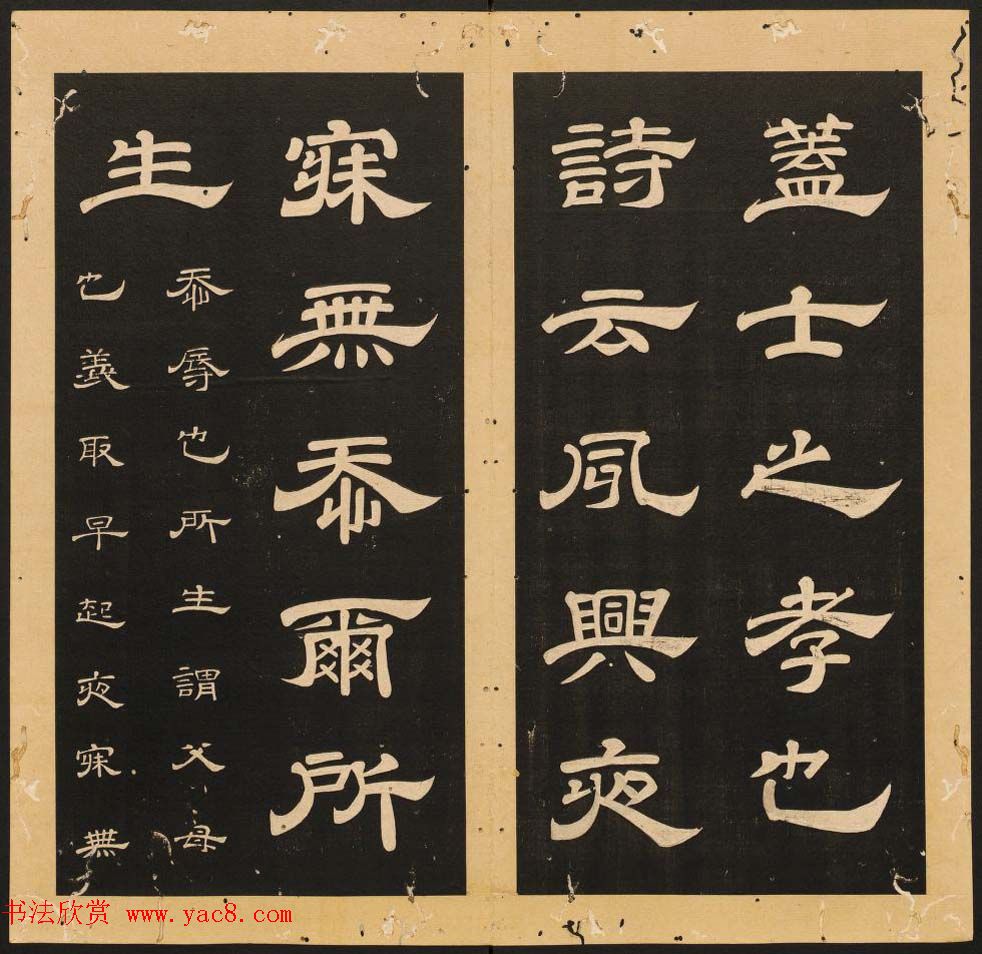 蓋士之孝也
詩云夙興夜
寐無忝爾所
生
忝辱也所生謂父母
也義取早起夜寐無
书法欣赏 www.yac8.com